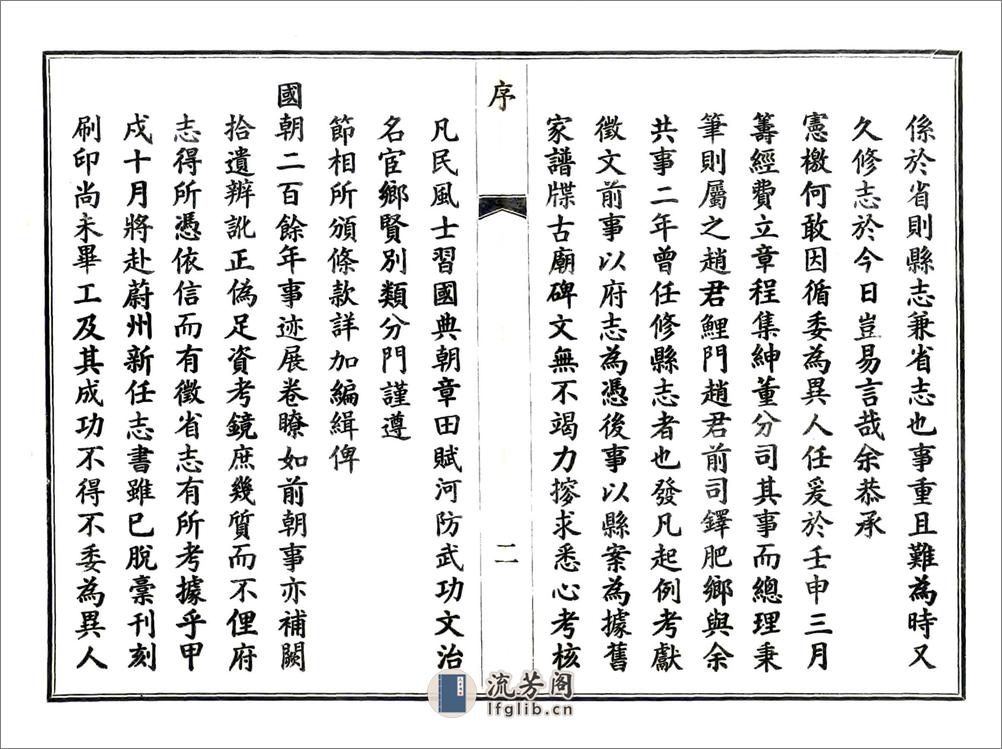 係於省則縣志兼省志也事重且難為時又
久修志於今日豈易言哉余恭承
憲檄何敢因循委為異人任爰於壬申三月
籌經費立章程集紳董分司其事而總理秉
筆則屬之趙君鯉門趙君前司鐸肥鄉與余
共事二年曾任修縣志者也發凡起例考獻
徵文前事以府志為憑後事以縣案為據舊
家譜牒古廟碑文無不竭力搜求悉心考核
序
二
凡民風士習國典朝章田賦河防武功文治
名宦鄉賢別類分門謹遵
節相所頒條款詳加編緝俾
國朝二百餘年事迹展卷瞭如前朝事亦補闕
拾遺辨訛正偽足資考鏡庶幾質而不俚府
志得所憑依信而有徵省志有所考據乎甲
戌十月將赴蔚州新任志書雖已脫稾刊刻
刷印尚未畢工及其成功不得不委為異人
流芳阁
lfglib.cn